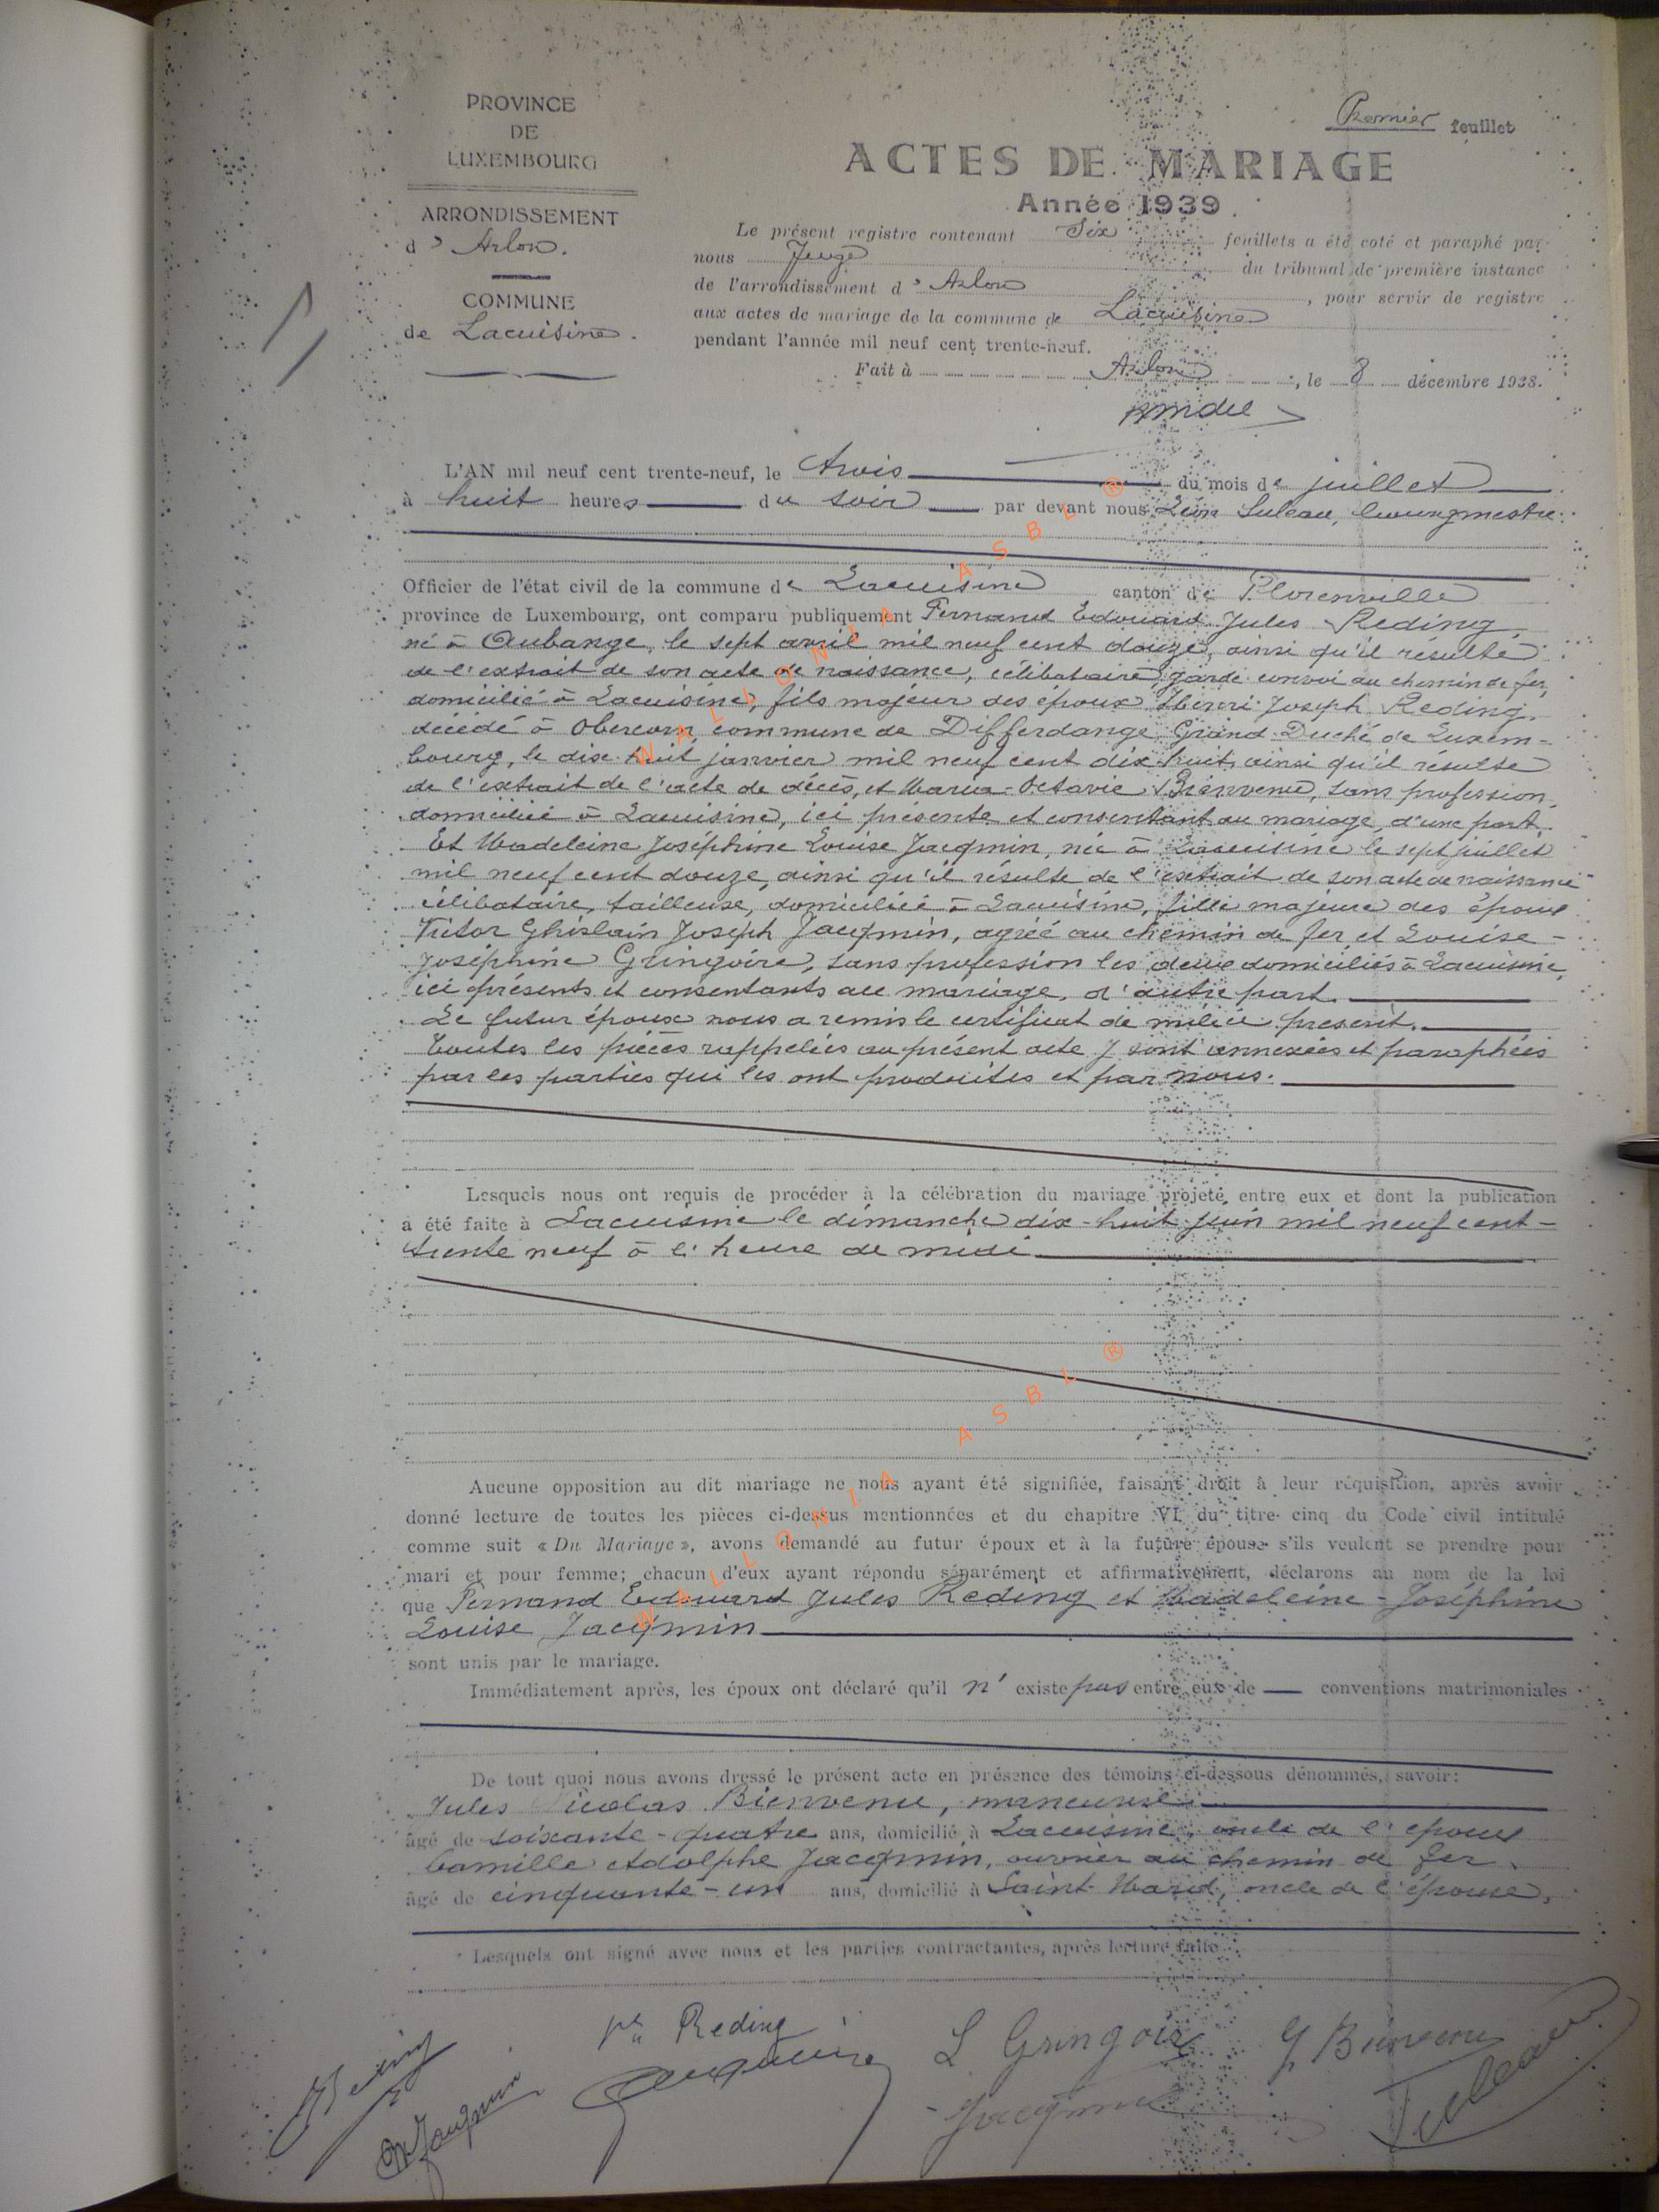 PROVINCE
DE
LUXEMBOURG
ARRONDISSEMENT
d' Arlon.
COMMUNE
de Lacuisine.
Premier feuillet
ACTES DE MARIAGE
Année 1939
Le présent registre contenant Six feuillets a été coté et paraphé par
nous Juge du tribunal de première instance
de l'arrondissement d' Arlon, pour servir de registre
aux actes de mariage de la commune de Lacuisine
pendant l'année mil neuf cent trente-neuf.
Fait à Arlon, le 8 décembre 1938.
1,
L'AN mil neuf cent trente-neuf, le trois du mois de juillet
à huit heures du soir par devant nous Léon Suleau, bourgmestre
Officier de l'état civil de la commune de Lacuisine canton de Florenville
province de Luxembourg, ont comparu publiquement Fernand Edouard Jules Reding
né à Aubange, le sept avril mil neuf cent douze, ainsi qu'il résulte
de l'extrait de son acte de naissance, célibataire, garde convoi au chemin de fer,
domicilié à Lacuisine, fils majeur des époux Henri Joseph Reding,
décédé à Obercorn, commune de Differdange Grand Duché de Luxem-
bourg, le dix huit janvier mil neuf cent dix huit, ainsi qu'il résulte
de l'extrait de l'acte de décès, et Maria-Octavie Bienvenu, sans profession,
domiciliée à Lacuisine, ici présente et consentant au mariage, d'une part.
Et Madeleine Joséphine Louise Jacqmin, née à Lacuisine le sept juillet
mil neuf cent douze, ainsi qu'il résulte de l'extrait de son acte de naissance
célibataire, tailleuse, domiciliée à Lacuisine, fille majeure des époux
Victor Ghislain Joseph Jacqmin, agréé au chemin de fer et Louise-
Joséphine Gringoire, sans profession les deux domiciliés à Lacuisine,
ici présents et consentants au mariage, d'autre part.
Le futur époux nous a remis le certificat de milice prescrit.
Toutes les pièces rappelées au présent acte y sont annexées et paraphées
par les parties qui les ont produites et par nous.
Lesquels nous ont requis de procéder à la célébration du mariage projeté entre eux et dont la publication
a été faite à Lacuisine le dimanche dix-huit juin mil neuf cent-
trente neuf à l'heure de midi
Aucune opposition au dit mariage ne nous ayant été signifiée, faisant droit à leur réquisition, après avoir
donné lecture de toutes les pièces ci-dessus mentionnées et du chapitre VI du titre cinq du Code civil intitulé
comme suit « Du Mariage », avons demandé au futur époux et à la future épouse s'ils veulent se prendre pour
mari et pour femme; chacun d'eux ayant répondu séparément et affirmativement, déclarons au nom de la loi
que Fernand Edouard Jules Reding et Madeleine-Joséphine
Louise Jacqmin
sont unis par le mariage.
Immédiatement après, les époux ont déclaré qu'il n' existe pas entre eux de conventions matrimoniales
De tout quoi nous avons dressé le présent acte en présence des témoins ci-dessous dénommés, savoir:
Jules Nicolas Bienvenu,
âgé de soixante-quatre ans, domicilié à Lacuisine, oncle de l'époux
Camille Adolphe Jacqmin, ouvrier au chemin de fer,
âgé de cinquante-un ans, domicilié à Saint-Mard, oncle de l'épouse,
Lesquels ont signé avec nous et les parties contractantes, après lecture faite
Reding
L Gringoire
J Bienvenu
Reding
Jacqmin
Jacqmin
Suleau
WALLONIA ASBL ®
WALLONIA ASBL ®